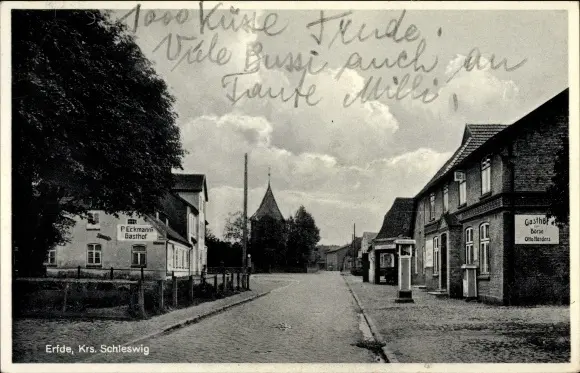 1000 Küsse Trude.
Viele Bussi auch an
Tante Milli.
P. Eckmann
Gasthof
Gasthof
z.
Börse
Otto
Erfde, Krs. Schleswig